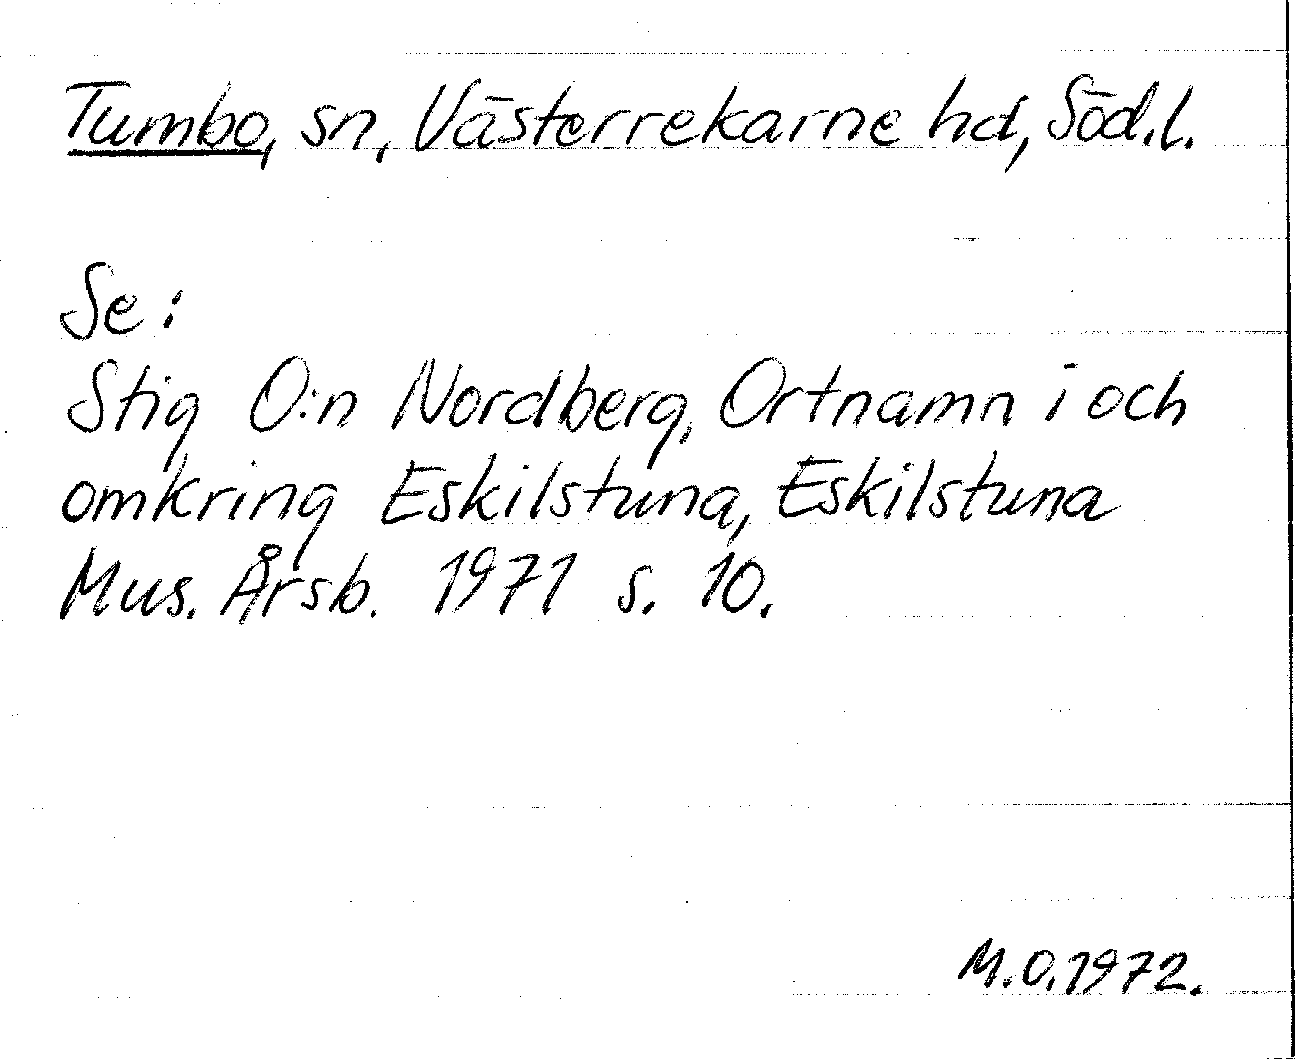 Tumbo, sn, Västerrekarne hd, Söd.l.
Se:
Stig O:n Nordberg, Ortnamn i och
omkring Eskilstuna, Eskilstuna
Mus. Årsb. 1971 s. 10.
M.O.1972.